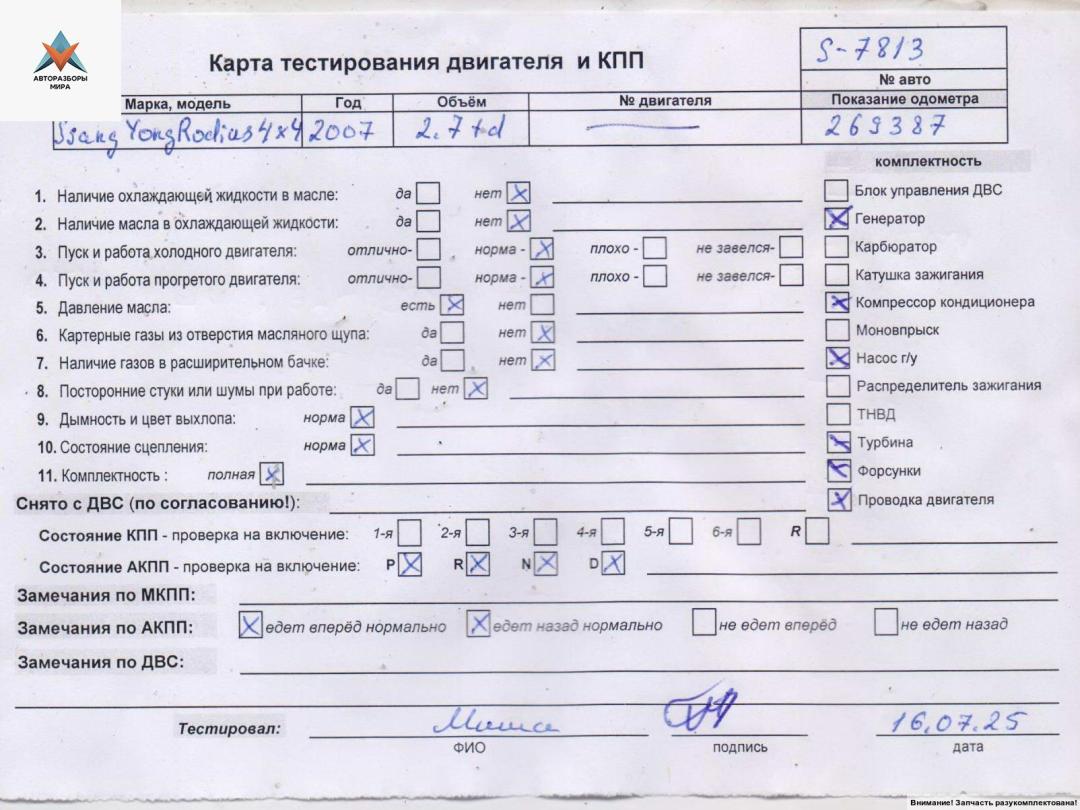 АВТОРАЗБОРЫ
МИРА
Карта тестирования двигателя и КПП
S-7813
№ авто
Марка, модель Год Объём № двигателя Показание одометра
SsangYongRodius 4x4 2007 2.7td 269387
комплектность
1. Наличие охлаждающей жидкости в масле: да нет
Блок управления ДВС
2. Наличие масла в охлаждающей жидкости: да нет
Генератор
3. Пуск и работа холодного двигателя: отлично- норма - плохо - не завелся-
Карбюратор
4. Пуск и работа прогретого двигателя: отлично- норма - плохо - не завелся-
Катушка зажигания
5. Давление масла: есть нет
Компрессор кондиционера
6. Картерные газы из отверстия масляного щупа: да нет
Моновпрыск
7. Наличие газов в расширительном бачке: да нет
Насос г/у
8. Посторонние стуки или шумы при работе: да нет
Распределитель зажигания
9. Дымность и цвет выхлопа: норма
ТНВД
10. Состояние сцепления: норма
Турбина
11. Комплектность : полная
Форсунки
Снято с ДВС (по согласованию!):
Проводка двигателя
Состояние КПП - проверка на включение: 1-я 2-я 3-я 4-я 5-я 6-я R
Состояние АКПП - проверка на включение: P R N D
Замечания по МКПП:
Замечания по АКПП: едет вперёд нормально едет назад нормально не едет вперёд не едет назад
Замечания по ДВС:
Тестировал: Миша 16.07.25
ФИО подпись дата
Внимание! Запчасть разукомплектована!